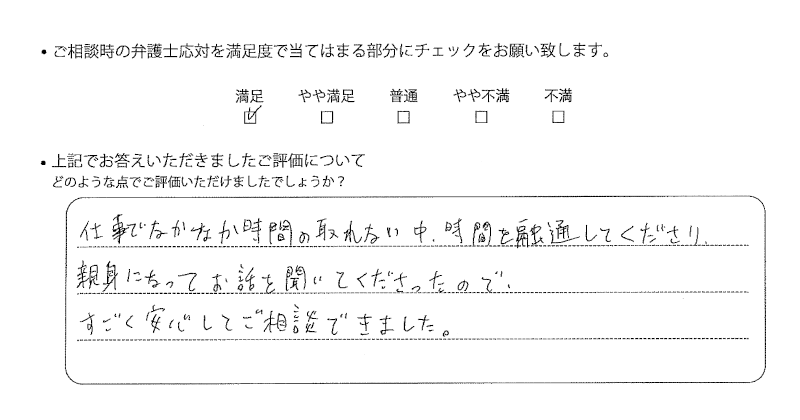 ・ご相談時の弁護士応対を満足度で当てはまる部分にチェックをお願い致します。
満足 やや満足 普通 やや不満 不満
☑ □ □ □ □
・上記でお答えいただきましたご評価について
どのような点でご評価いただけましたでしょうか？
仕事でなかなか時間の取れない中、時間を融通してくださり、
親身になってお話を聞いてくださったので、
すごく安心してご相談できました。